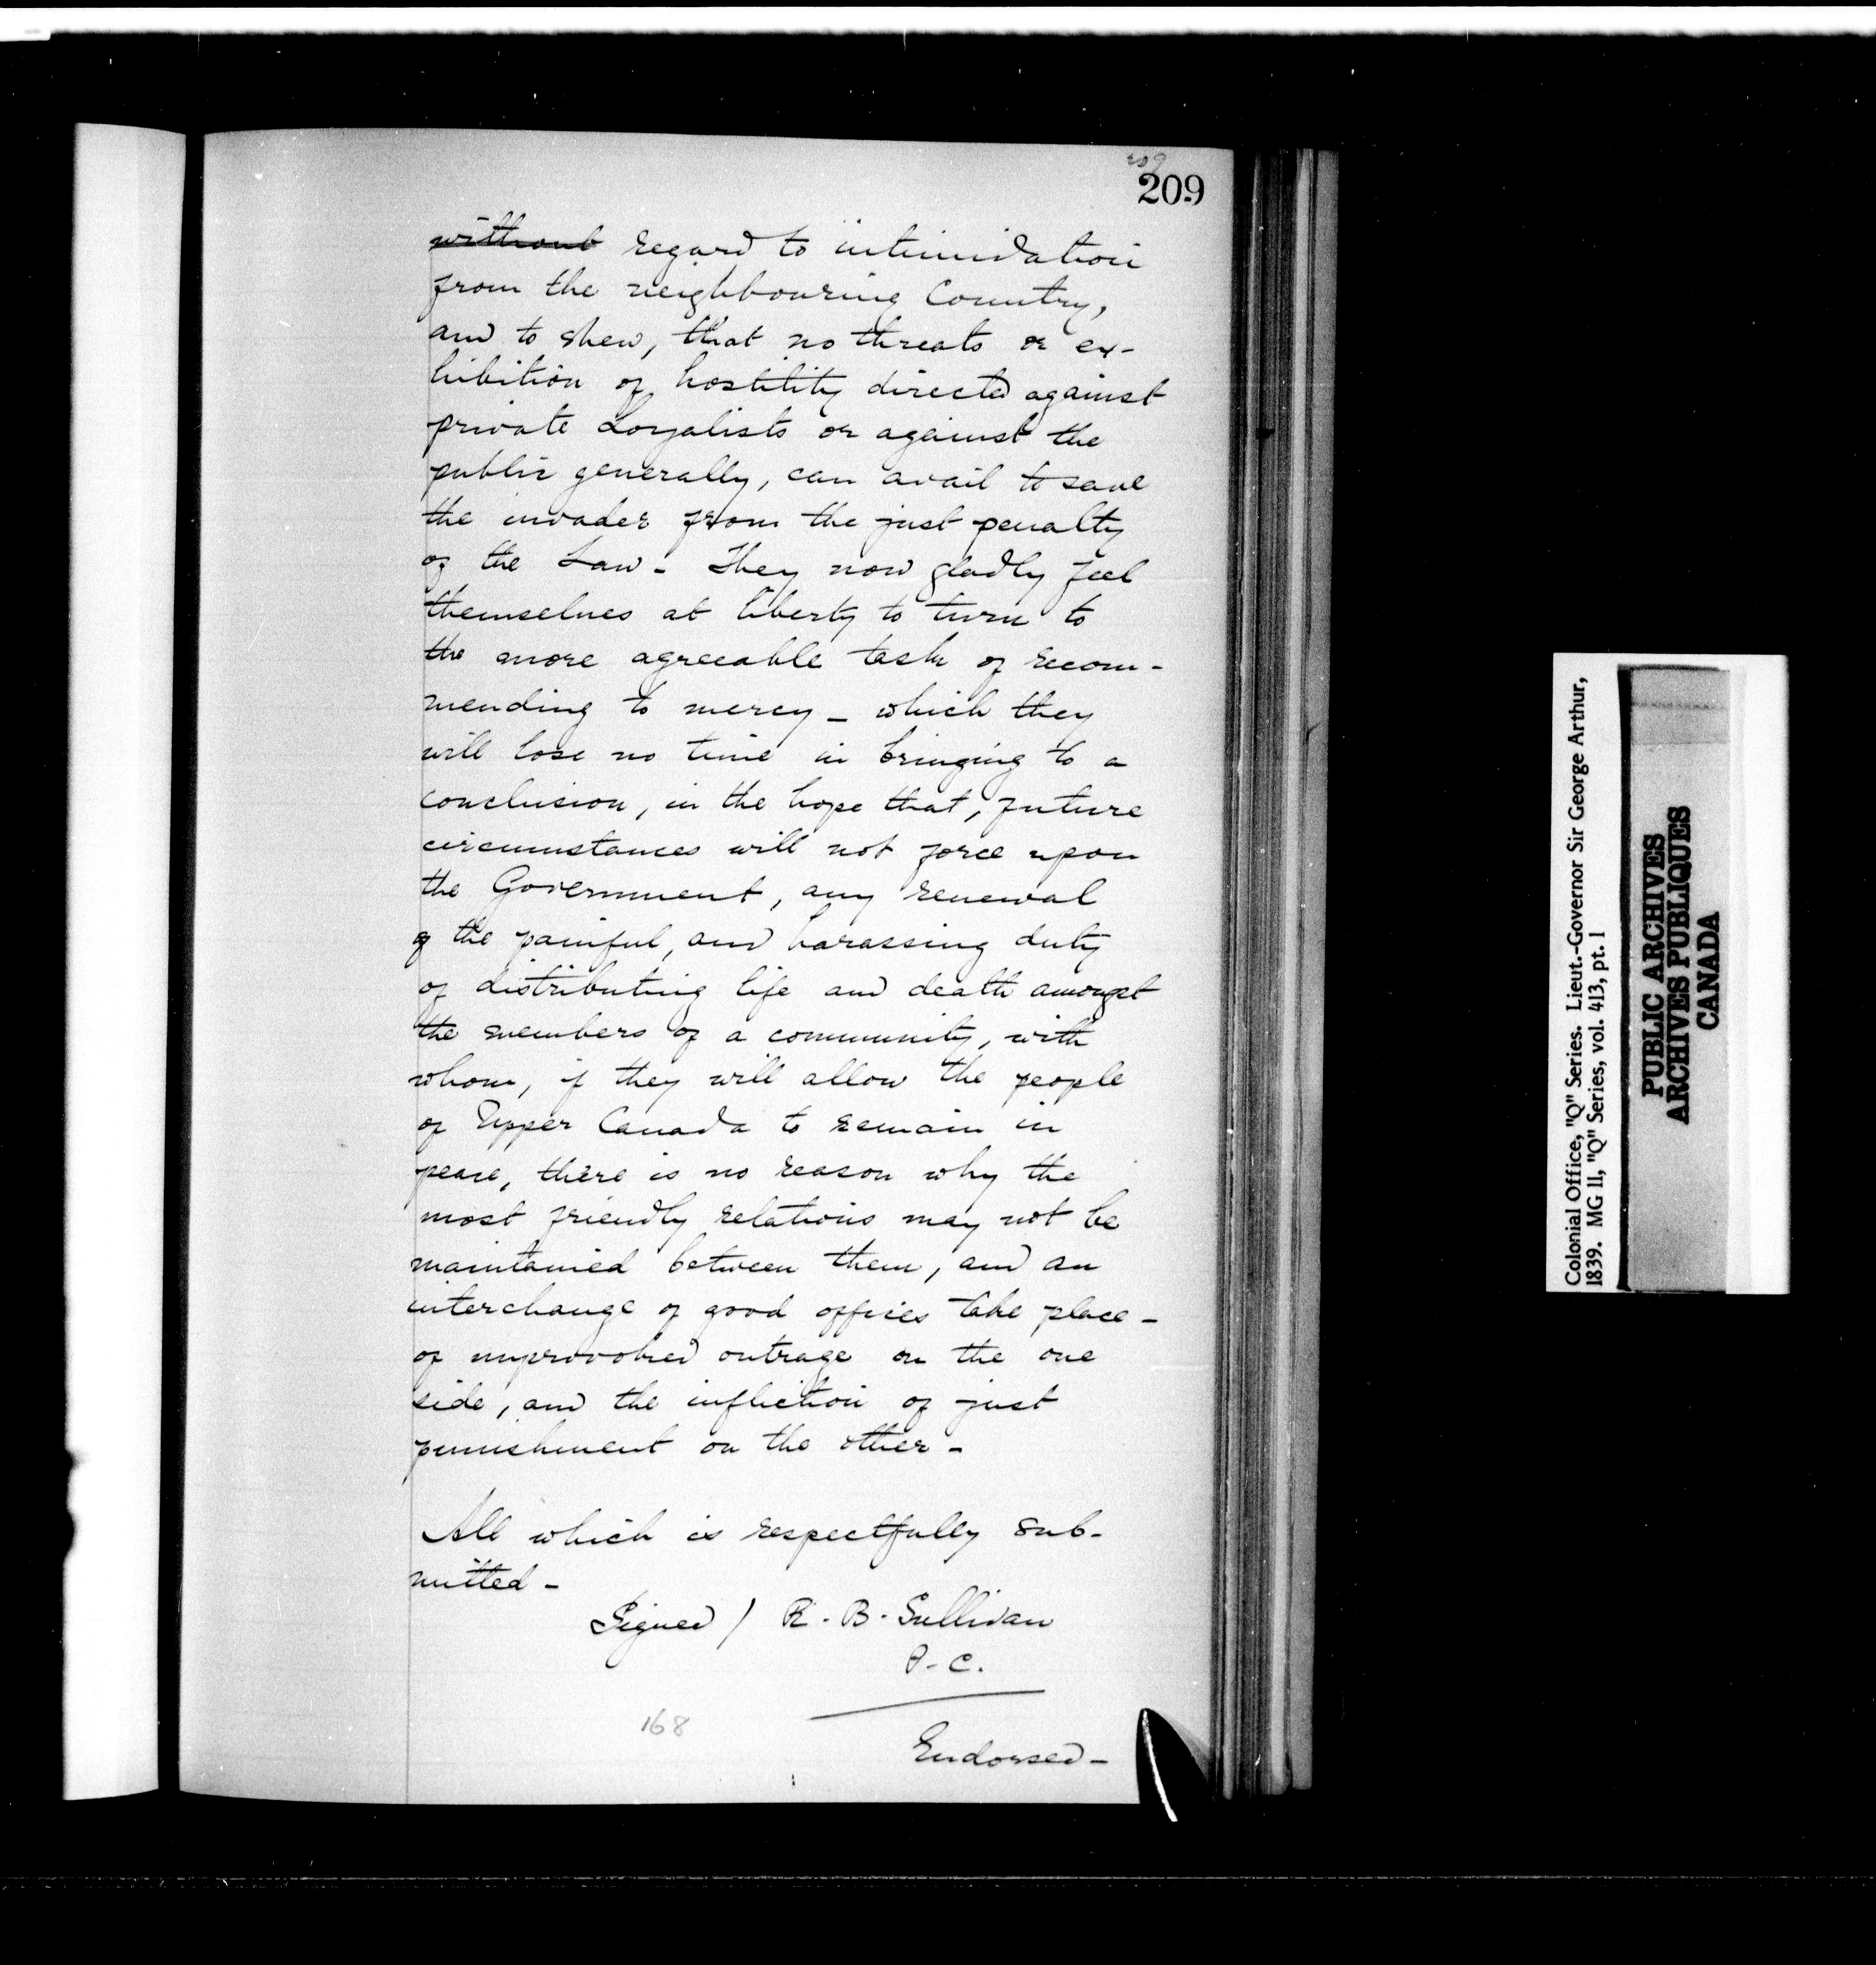 209
209
without regard to intimidation
from the neighbouring Country,
and to shew, that no threats or ex-
hibition of hostility directed against
private Loyalists or against the
public generally, can avail to save
the invader from the just penalty
of the Law - They now gladly feel
themselves at liberty to turn to
the more agreeable task of recom-
mending to mercy - which they
will lose no time in bringing to a
conclusion, in the hope that, future
circumstances will not force upon
the Government, any renewal
of the painful, and harassing duty
of distributing life and death amongst
the members of a community, with
whom, if they will allow the people
of Upper Canada to remain in
peace, there is no reason why the
most friendly relations may not be
maintained between them, and an
interchange of good offices take place -
of unprovoked outrage on the one
side, and the infliction of just
punishment on the other -
All which is respectfully sub-
mitted -
Signed / R. B. Sullivan
P. C.
168
Endorsed -
Colonial Office, "Q" Series. Lieut.-Governor Sir George Arthur,
1839. MG 11, "Q" Series, vol. 413, pt. 1
PUBLIC ARCHIVES
ARCHIVES PUBLIQUES
CANADA